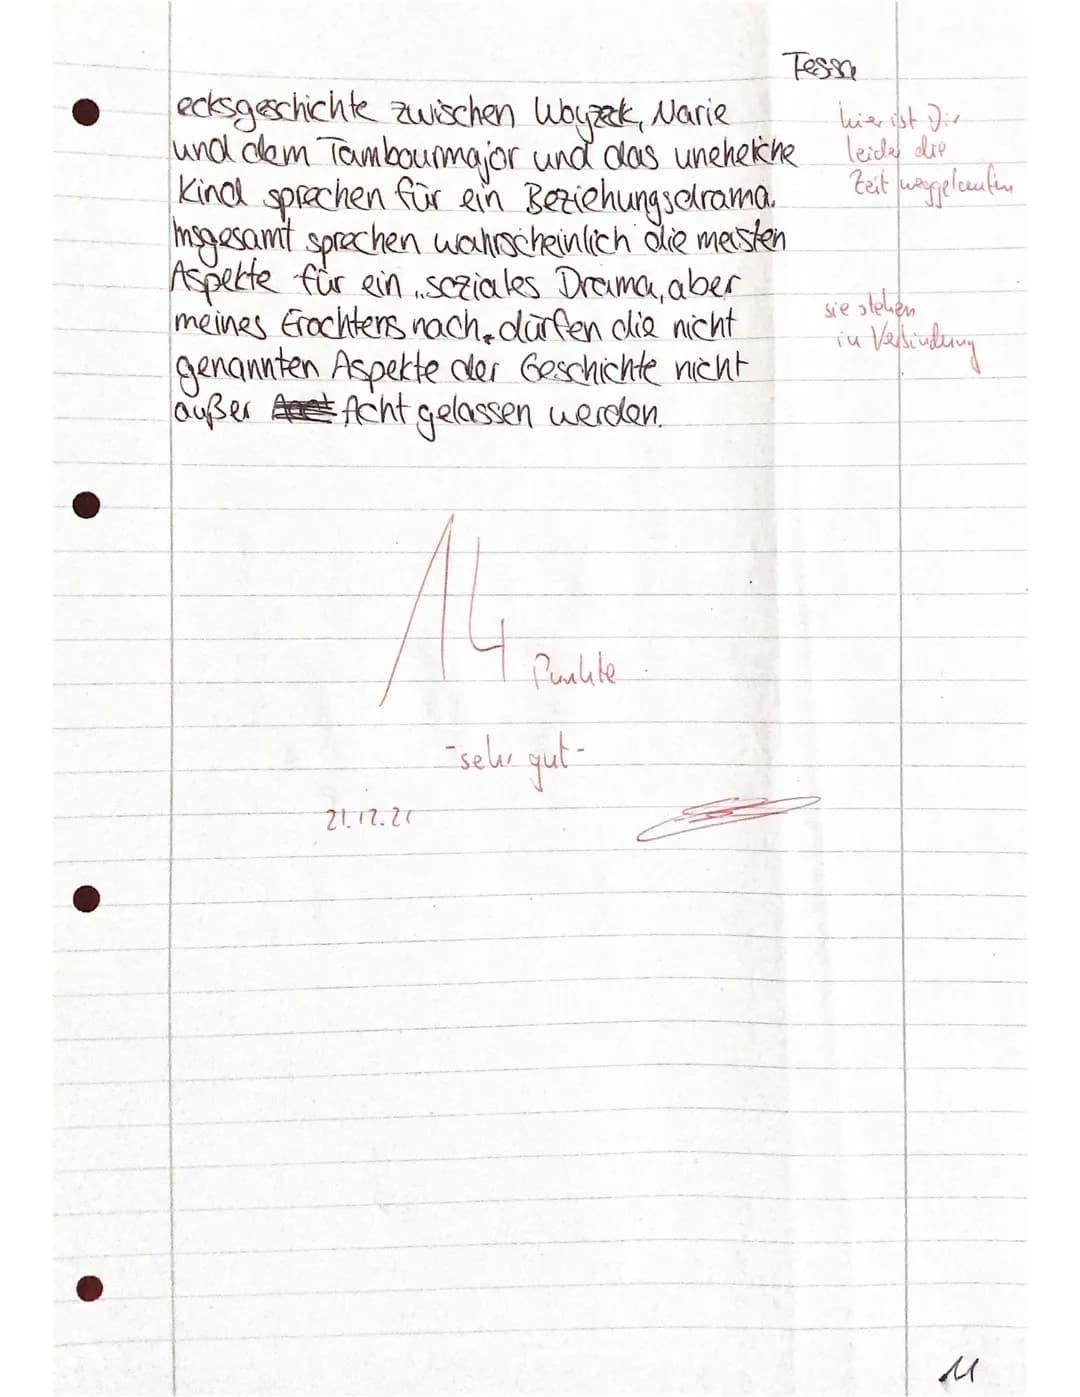 Tessa
ecksgeschichte zwischen Woyzeck, Marie
und dem Tambourmajor und das uneheliche
Kind sprechen für ein Beziehungsdrama.
Insgesamt sprechen wahrscheinlich die meisten
Aspekte für ein soziales Drama, aber
meines Erachtens nach dürfen die nicht
genannten Aspekte der Geschichte nicht
außer Acht gelassen werden.
hier ist Dir
leider die
Zeit weggelaufen
sie stehen
in Verbindung
14 Punkte
-sehr gut-
21.12.21
11